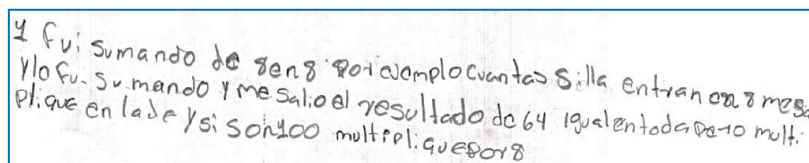 y fui sumando de 8 en 8 por ejemplo cuantas silla entran en 8 mesa
y lo fu. sumando y me salio el resultado de 64 igual en todas pero multi
plique en la de y si son 100 multiplique por 8